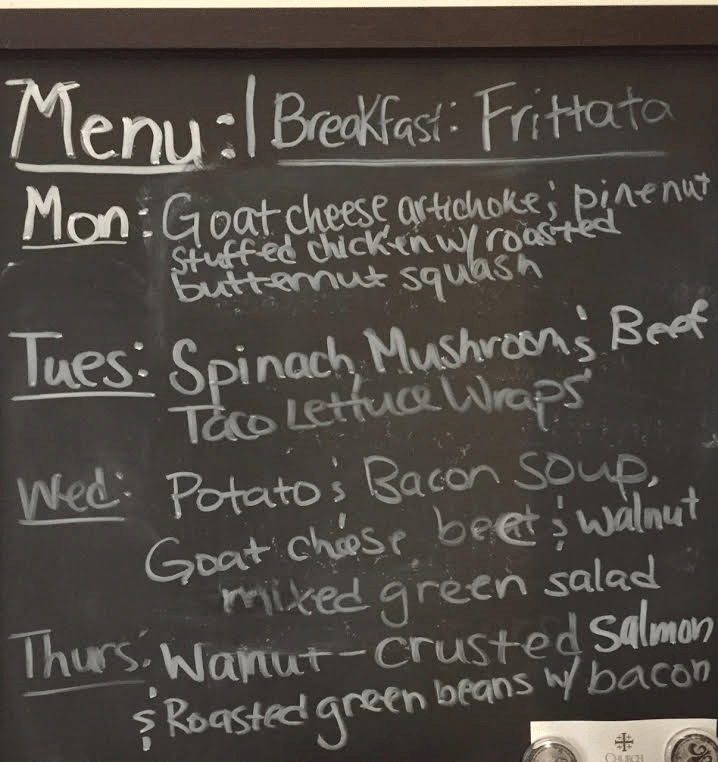 Menu: | Breakfast: Frittata
Mon: Goat cheese artichoke & pine nut
stuffed chicken w/ roasted
butternut squash
Tues: Spinach, Mushroom & Beef
Taco Lettuce Wraps
Wed: Potato & Bacon soup,
Goat cheese beet & walnut
mixed green salad
Thurs: Wanut-crusted salmon
& Roasted green beans w/ bacon
CHURCH